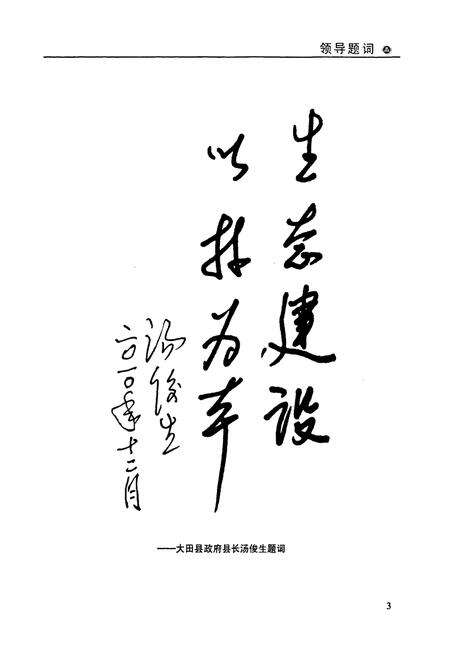 领导题词
生态建设
以林为本
汤俊生
二〇一〇年十二月
——大田县政府县长汤俊生题词
3